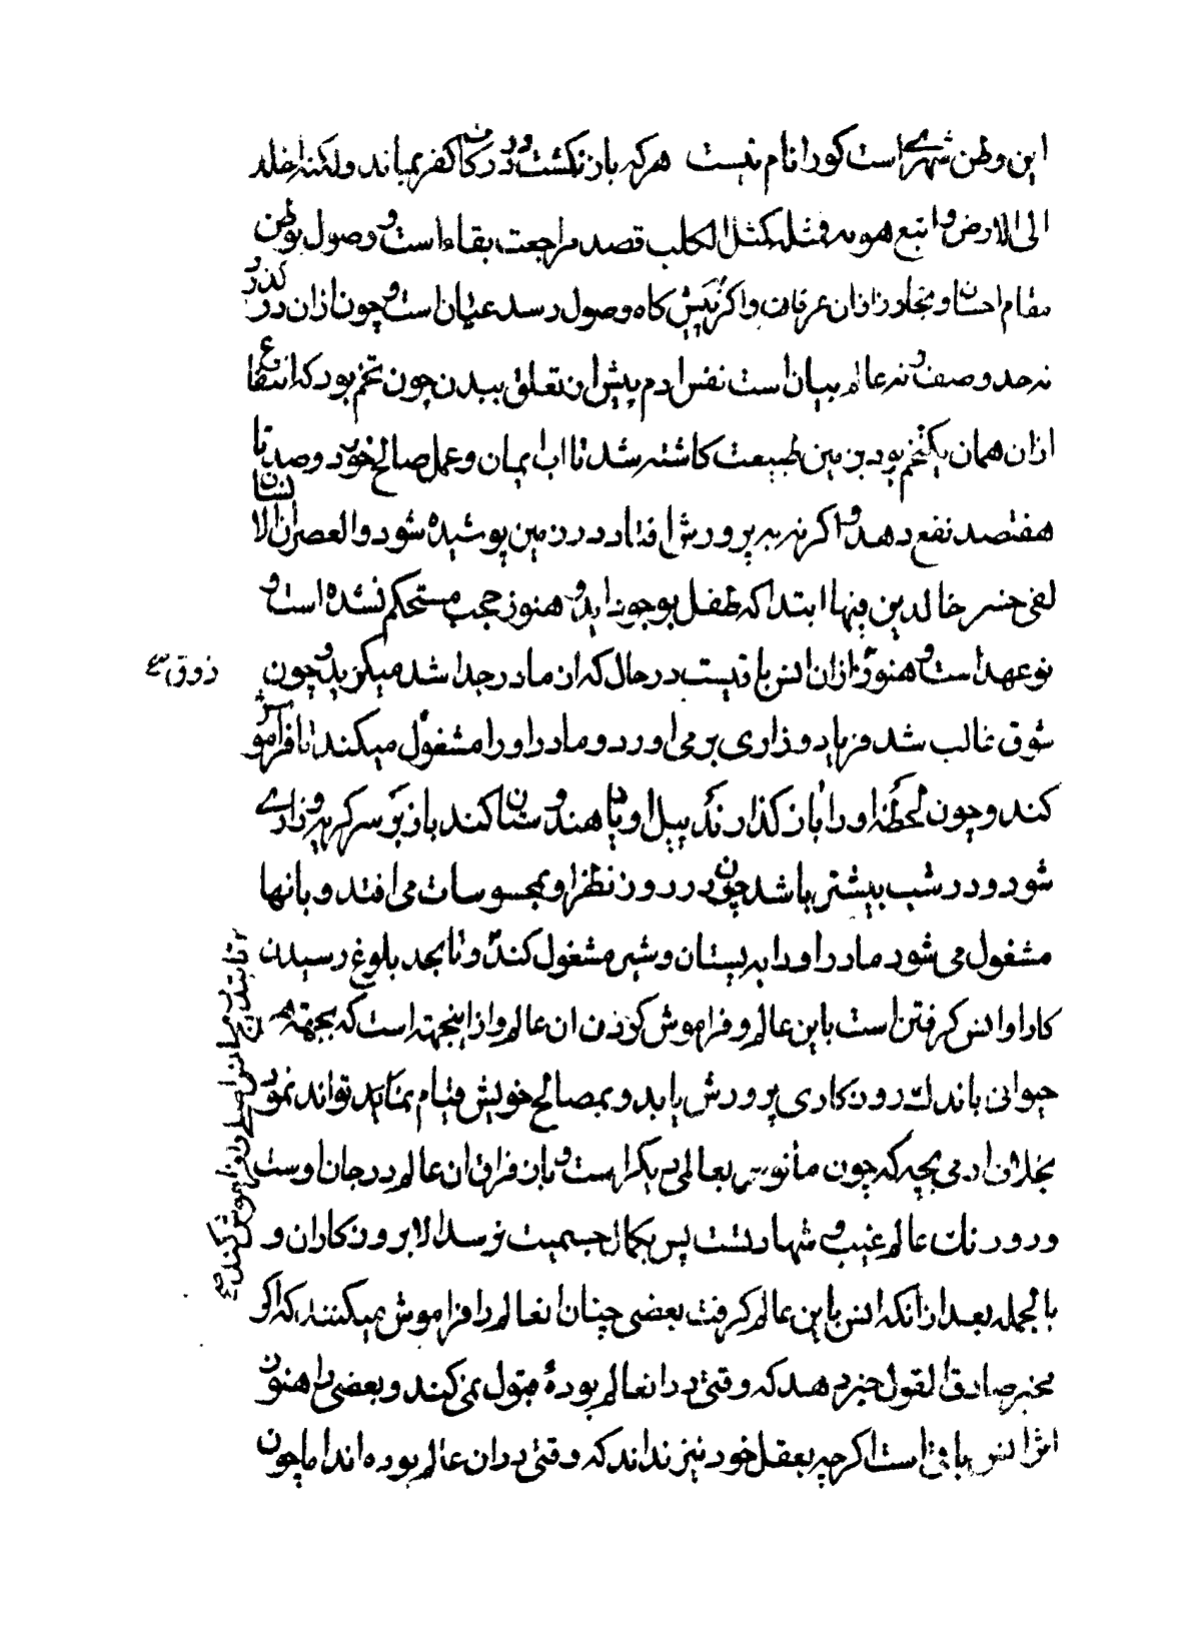 این وطن شهرے است کورا نام نیست هرکه باز نکشت و در درکات کفر بماند ولکنه اخلد
الی الارض واتبع هویه فمثله کمثل الکلب قصد مراجعت بقاء است و وصول بوطن
مقام احسان و تجاوز ازان عرفان واکر پیش کاه وصول رسد عیان است و چون ازان در کذرد
نه حد وصف و نه عالم بیان است نفس ادم پیش ان تعلق ببدن چون تخم بود که انتفاع
ازان همان یک تخم بود بزمین طبیعت کاشته شد تا اب ایمان و عمل صالح خورد و صد تا
هفتصد نفع دهد و اکر نه به پرورش افتاد در زمین پوشیده شود والعصر ان الانسان
لفی خسر خالدین فیها ابتدا که طفل بوجود اید و هنوز حجب مستحکم نشده است و
نو عهد است و هنوز ازان انس باقیست در حال که از مادر جدا شد میکرید و چون
ذوق
شوق غالب شد فریاد و زاری بر می اورد و مادر اورا مشغول میکند تا فراموش
کند و چون لحظه اورا باز کذارند پیل او یاد هندوستان کند باز بر سر کریه و زارے
شود و در شب بیشتر باشد چون در روز نظر او بمحسوسات می افتد و بانها
مشغول می شود مادر اورا به پستان و شیر مشغول کند و تا بحد بلوغ رسیدن
کار او انس کرفتن است باین عالم و فراموش کردن ان عالم و ازینجهته است که بچهٔ هر
حیوانی باندک روزکاری پرورش یابد و بمصالح خویش قیام نماید تواند نمود
بخلاف ادمی بچه که چون مأنوس بعالمی دیکر است و بار فراق ان عالم در جان اوست
تا بتدریج عالم اصلے را فراموش کند
و درد نات عالم غیب و شهادتست پس بکمال جسمیت نرسد الا بروزکاران و
بالجمله بعد ازانکه انس باین عالم کرفت بعضی چنان انعالم را فراموش میکنند که اکر
مخبر صادق القول خبر دهد که وقتی در انعالم بودهٔ قبول نمی کند و بعضی را هنوز
اثر انس باقی است اکرچه بعقل خود نیز نداند که وقتی دران عالم بوده اند اما چون